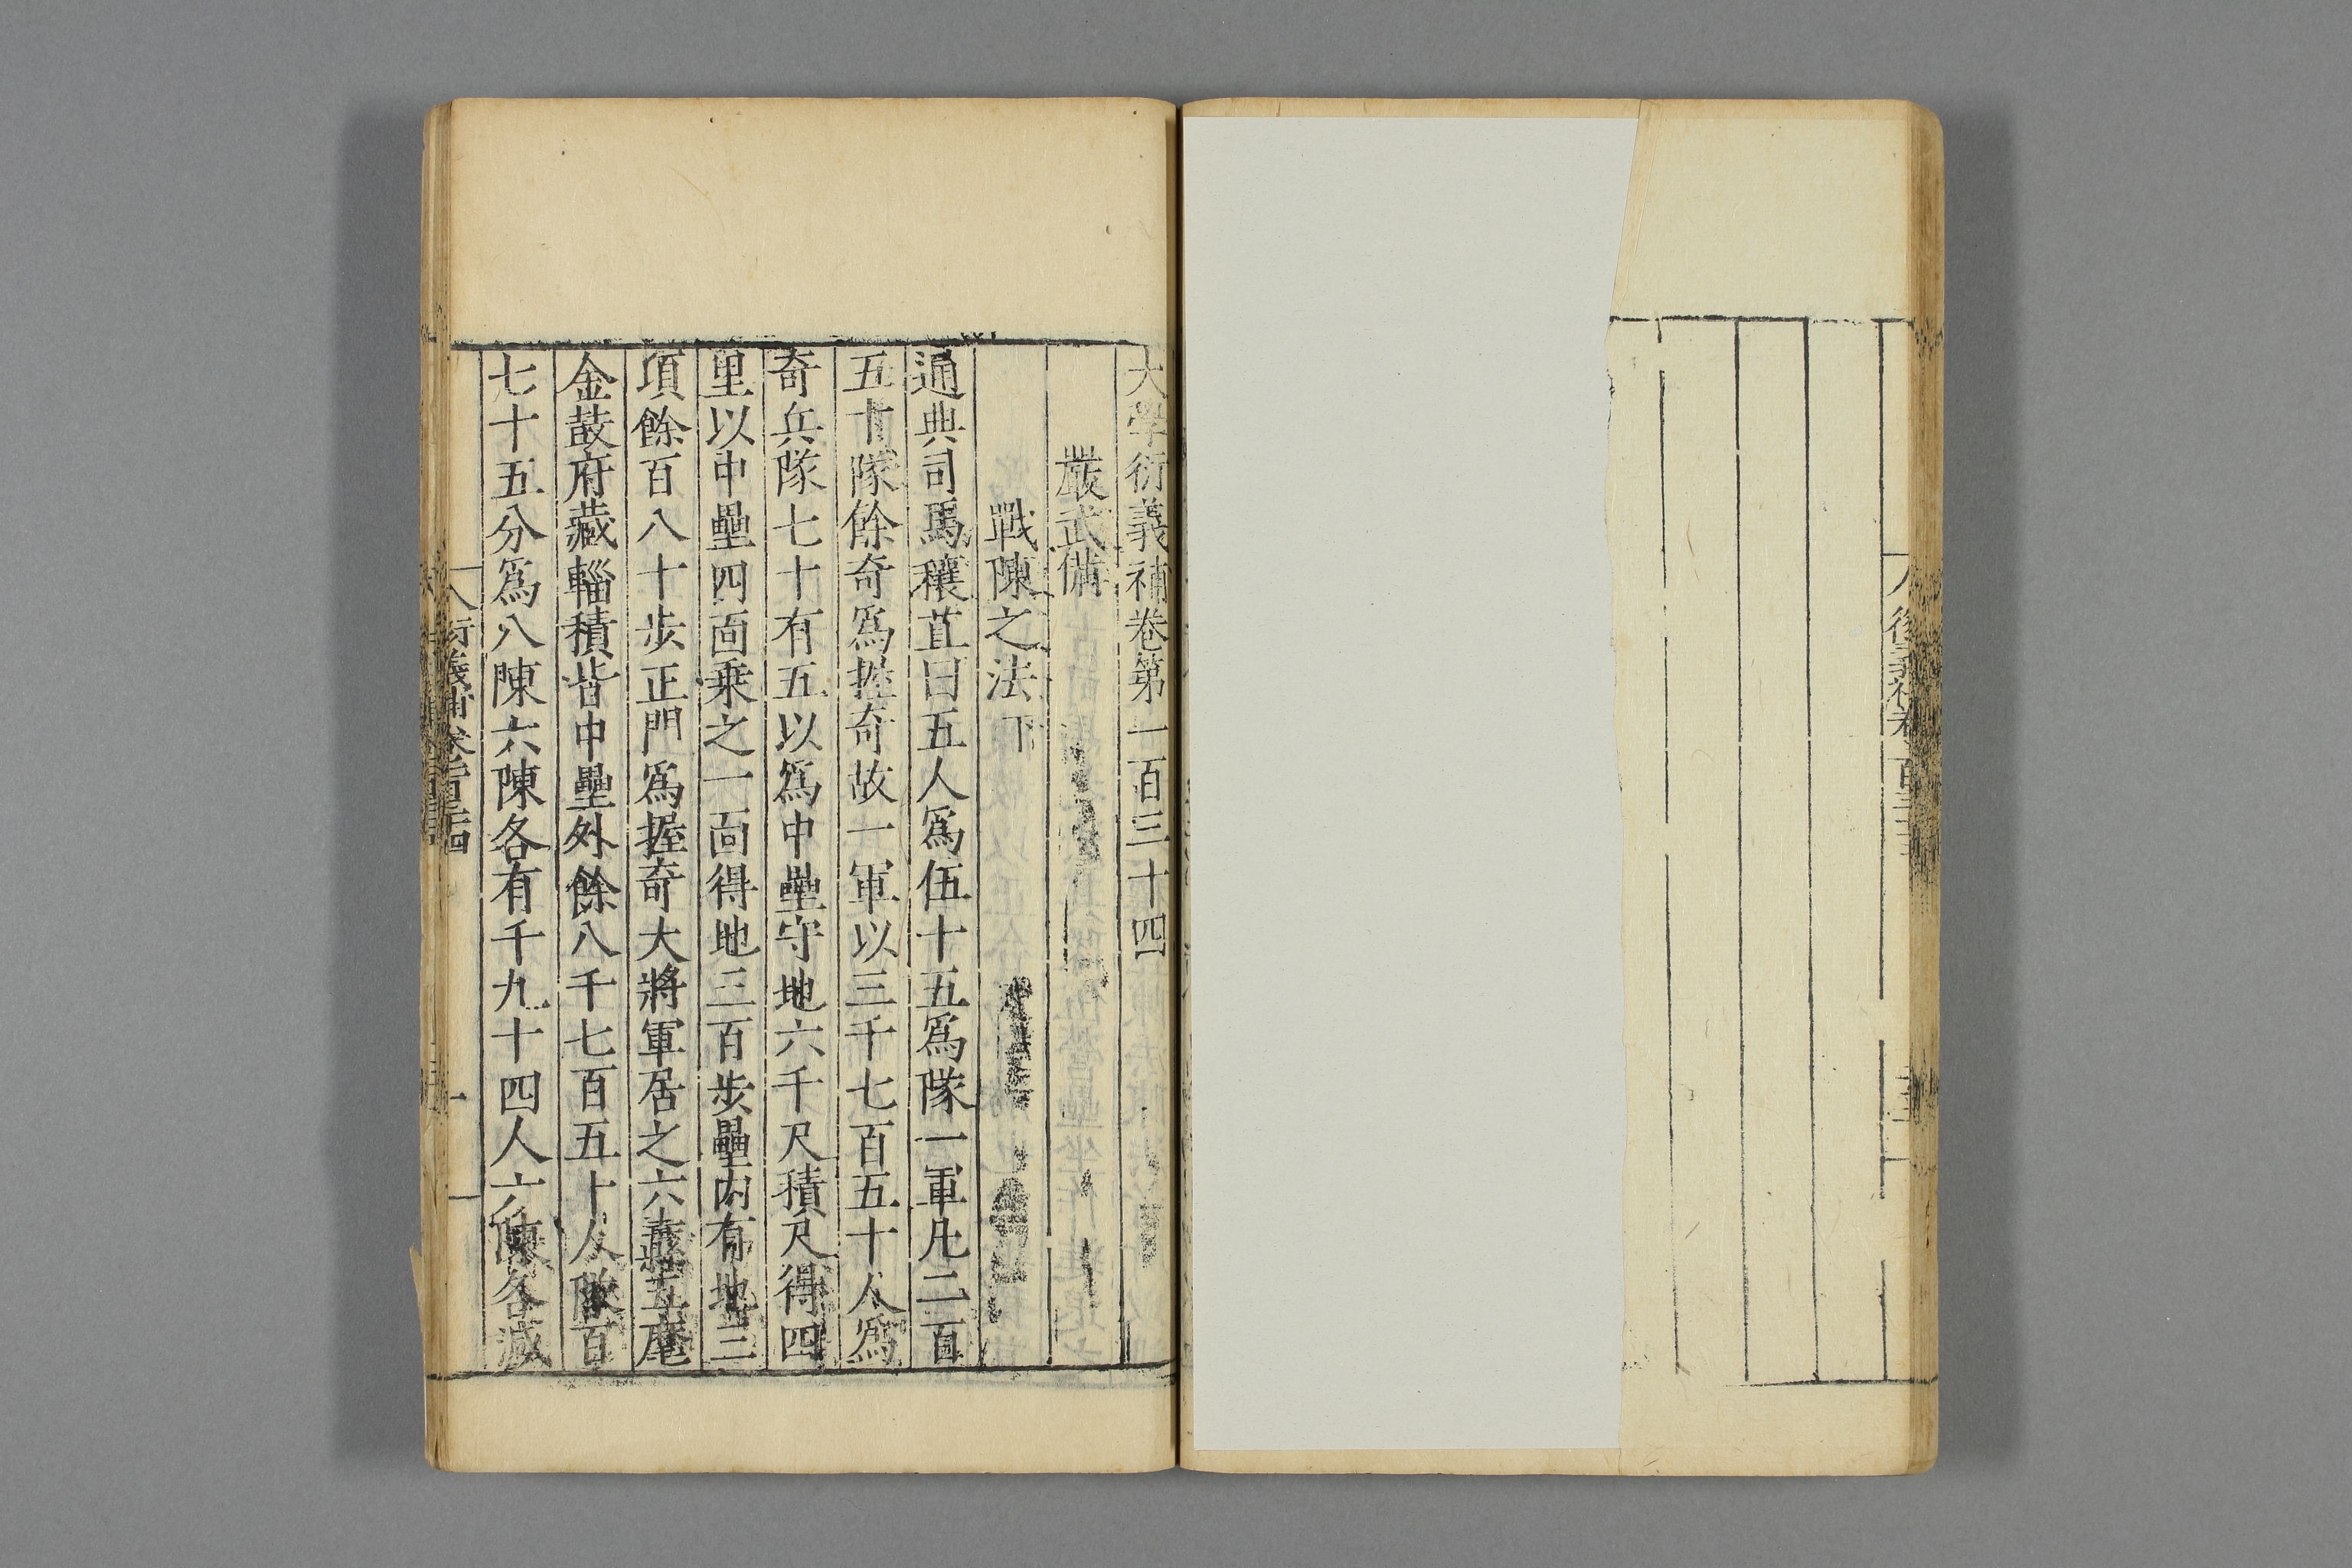 大學衍義補卷第一百三十四
嚴武備
戰陳之法下
通典司馬穰苴曰五人爲伍十五爲隊一軍凡二百
五十隊餘奇爲握奇故一軍以三千七百五十人爲
奇兵隊七十有五以爲中壘守地六千尺積尺得四
里以中壘四面乘之一面得地三百步壘内有地三
頃餘百八十步正門爲握奇大將軍居之六纛五麾
金鼓府藏輜積皆中壘外餘八千七百五十人隊百
七十五分爲八陳六陳各有千九十四人六陳各減
衍義補卷一百三十四
一